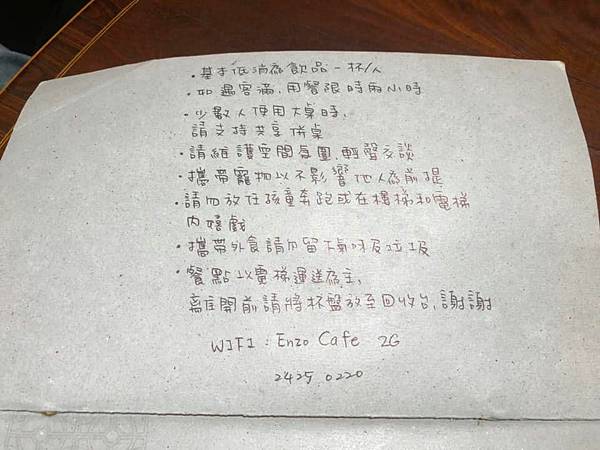 ·基本低消為飲品一杯/人
·如遇客滿,用餐限時兩小時
·少數人使用大桌時,
請支持共享併桌
·請維護空間氛圍,輕聲交談
·攜帶寵物以不影響他人為前提
·請勿放任孩童奔跑或在樓梯和電梯
內嬉戲
·攜帶外食請勿留下氣味及垃圾
·餐點以電梯運送為主,
離開前請將杯盤放至回收台,謝謝
WIFI : Enzo Cafe 2G
2425 0220